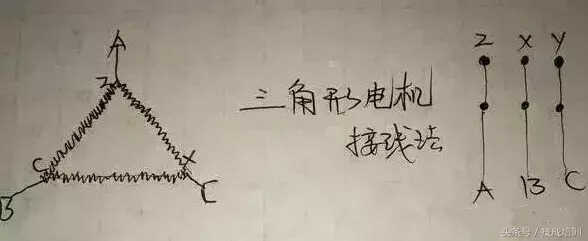 A
Z
C
X
B
C
三角形电机
接线法
Z X Y
A B C
头条号／技成培训